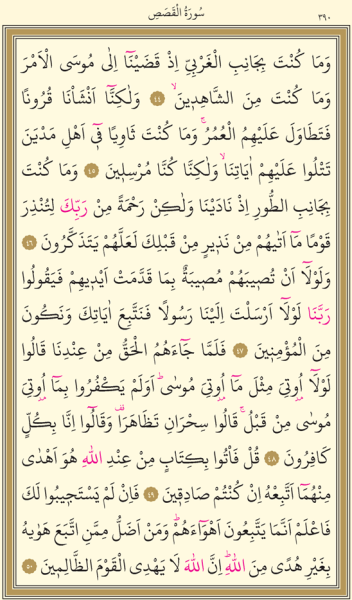 سُورَةُ الْقَصَصِ ٣٩٠
وَمَا كُنْتَ بِجَانِبِ الْغَرْبِيِّ اِذْ قَضَيْنَٓا اِلٰى مُوسَى الْاَمْرَ
وَمَا كُنْتَ مِنَ الشَّاهِدٖينَۙ ﴿٤٤﴾ وَلٰكِنَّٓا اَنْشَأْنَا قُرُونًا
فَتَطَاوَلَ عَلَيْهِمُ الْعُمُرُۚ وَمَا كُنْتَ ثَاوِيًا فٖٓي اَهْلِ مَدْيَنَ
تَتْلُوا عَلَيْهِمْ اٰيَاتِنَاۙ وَلٰكِنَّا كُنَّا مُرْسِلٖينَ ﴿٤٥﴾ وَمَا كُنْتَ
بِجَانِبِ الطُّورِ اِذْ نَادَيْنَا وَلٰكِنْ رَحْمَةً مِنْ رَبِّكَ لِتُنْذِرَ
قَوْمًا مَٓا اَتٰيهُمْ مِنْ نَذٖيرٍ مِنْ قَبْلِكَ لَعَلَّهُمْ يَتَذَكَّرُونَ ﴿٤٦﴾
وَلَوْلَٓا اَنْ تُصٖيبَهُمْ مُصٖيبَةٌ بِمَا قَدَّمَتْ اَيْدٖيهِمْ فَيَقُولُوا
رَبَّنَا لَوْلَٓا اَرْسَلْتَ اِلَيْنَا رَسُولًا فَنَتَّبِعَ اٰيَاتِكَ وَنَكُونَ
مِنَ الْمُؤْمِنٖينَ ﴿٤٧﴾ فَلَمَّا جَٓاءَهُمُ الْحَقُّ مِنْ عِنْدِنَا قَالُوا
لَوْلَٓا اُو۫تِيَ مِثْلَ مَٓا اُو۫تِيَ مُوسٰىؕ اَوَلَمْ يَكْفُرُوا بِمَٓا اُو۫تِيَ
مُوسٰى مِنْ قَبْلُۚ قَالُوا سِحْرَانِ تَظَاهَرَا۠ وَقَالُٓوا اِنَّا بِكُلٍّ
كَافِرُونَ ﴿٤٨﴾ قُلْ فَأْتُوا بِكِتَابٍ مِنْ عِنْدِ اللّٰهِ هُوَ اَهْدٰى
مِنْهُمَٓا اَتَّبِعْهُ اِنْ كُنْتُمْ صَادِقٖينَ ﴿٤٩﴾ فَاِنْ لَمْ يَسْتَجٖيبُوا لَكَ
فَاعْلَمْ اَنَّمَا يَتَّبِعُونَ اَهْوَٓاءَهُمْؕ وَمَنْ اَضَلُّ مِمَّنِ اتَّبَعَ هَوٰيهُ
بِغَيْرِ هُدًى مِنَ اللّٰهِؕ اِنَّ اللّٰهَ لَا يَهْدِي الْقَوْمَ الظَّالِمٖينَ ﴿٥٠﴾